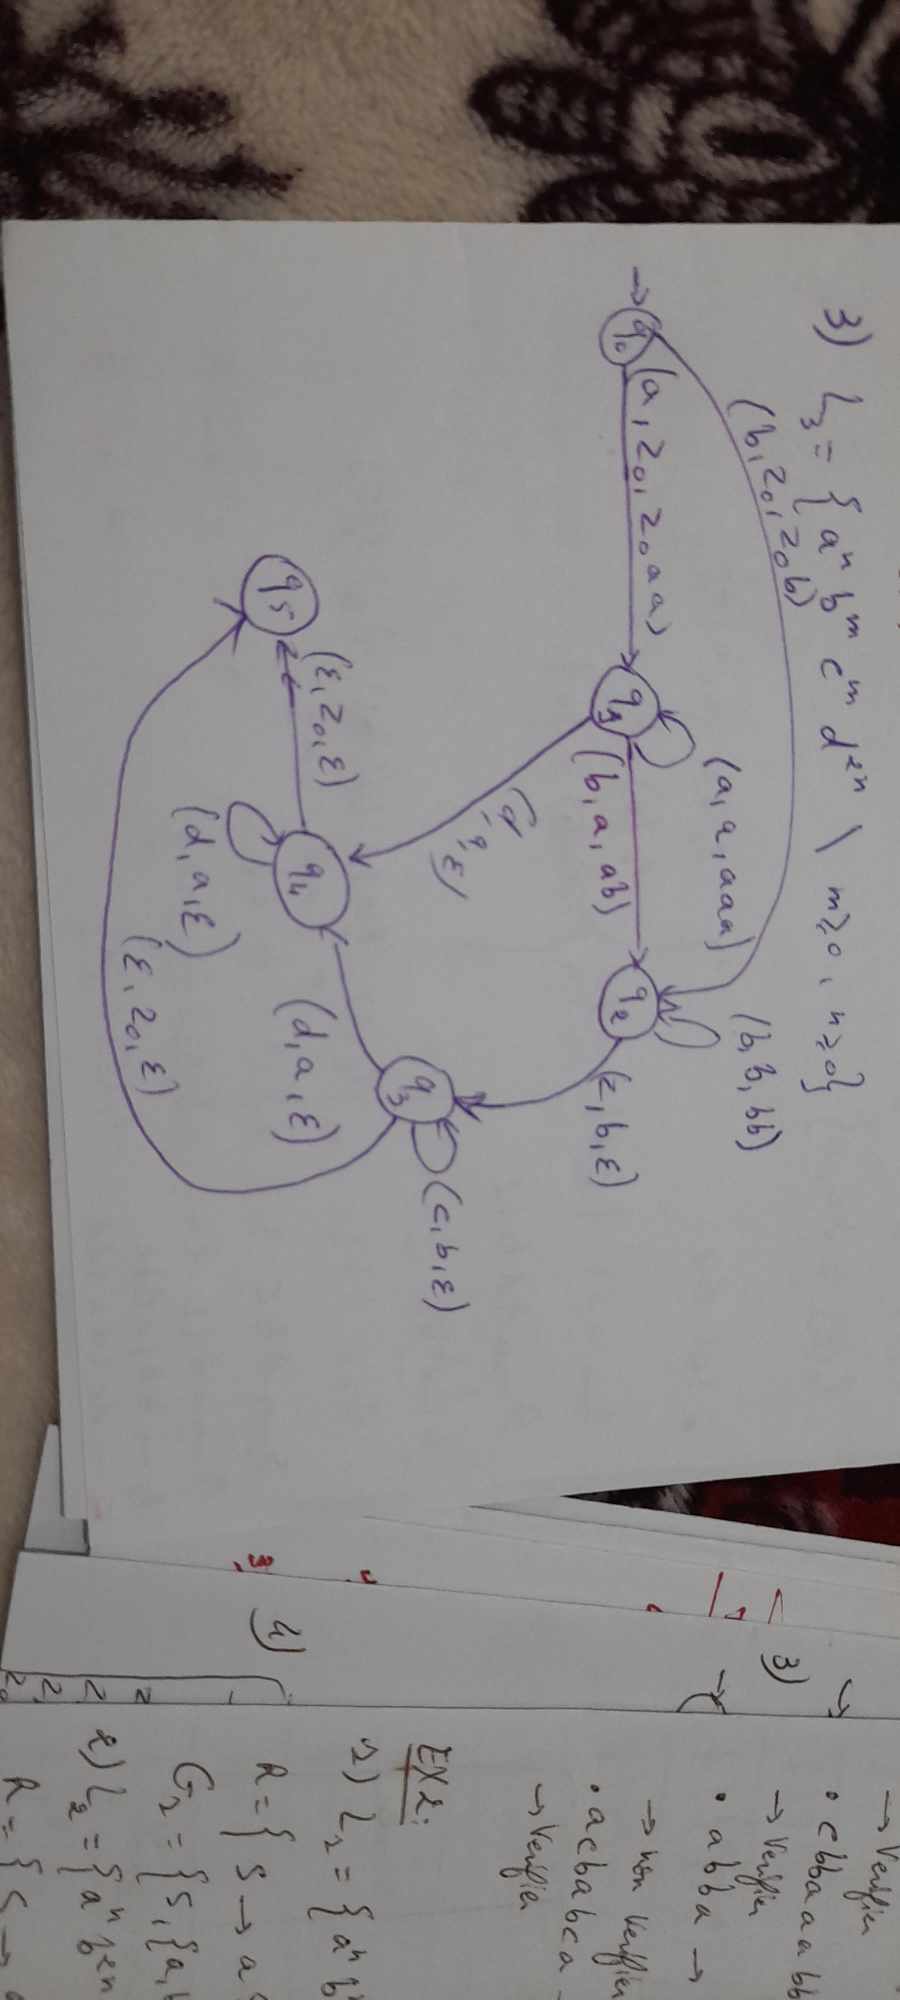 3) L₃ = { aⁿ bᵐ cᵐ d²ⁿ \ m≥0, n≥0}
(b, z₀, z₀b)
(b, b, bb)
(a, a, aaa)
→ q₀ (a, z₀, z₀aa) q₁ (b, a, ab) q₂ (c, b, ε)
(d, a, ε)
q₃ (c, b, ε)
(d, a, ε)
q₅ (ε, z₀, ε) q₄
(d, a, ε)
(ε, z₀, ε)
→ Verifier
• cbbaaabb
3)
→ Verifier
• abba →
→ non Verifier
• acbabca
→ Verifier
EX2:
1) L₁ = { aⁿ b
R = { S → a
4)
G₁ = {S, {a, b
2) L₂ = { aⁿ b²ⁿ
R = { S →